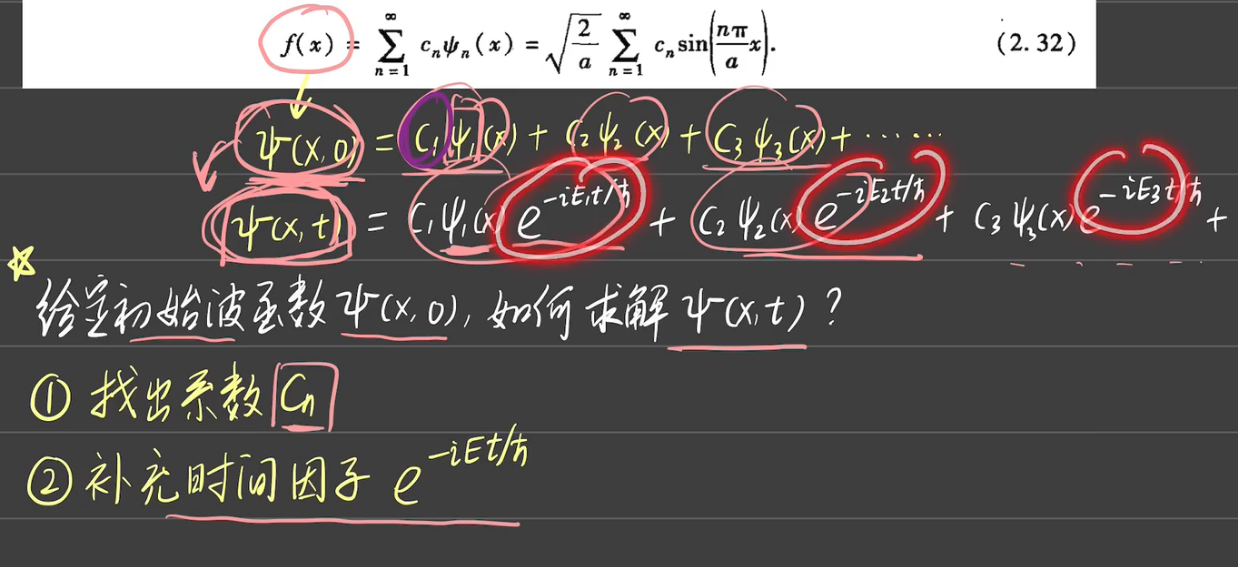 f(x) = ∑_{n=1}^{∞} c_n ψ_n(x) = √(2/a) ∑_{n=1}^{∞} c_n sin(nπ/a x). (2.32)
Ψ(x,0) = C₁ψ₁(x) + C₂ψ₂(x) + C₃ψ₃(x) + ······
Ψ(x,t) = C₁ψ₁(x) e^{-iE₁t/ħ} + C₂ψ₂(x) e^{-iE₂t/ħ} + C₃ψ₃(x) e^{-iE₃t/ħ} +
给定初始波函数 Ψ(x,0), 如何求解 Ψ(x,t)?
① 找出系数 Cₙ
② 补充时间因子 e^{-iEt/ħ}